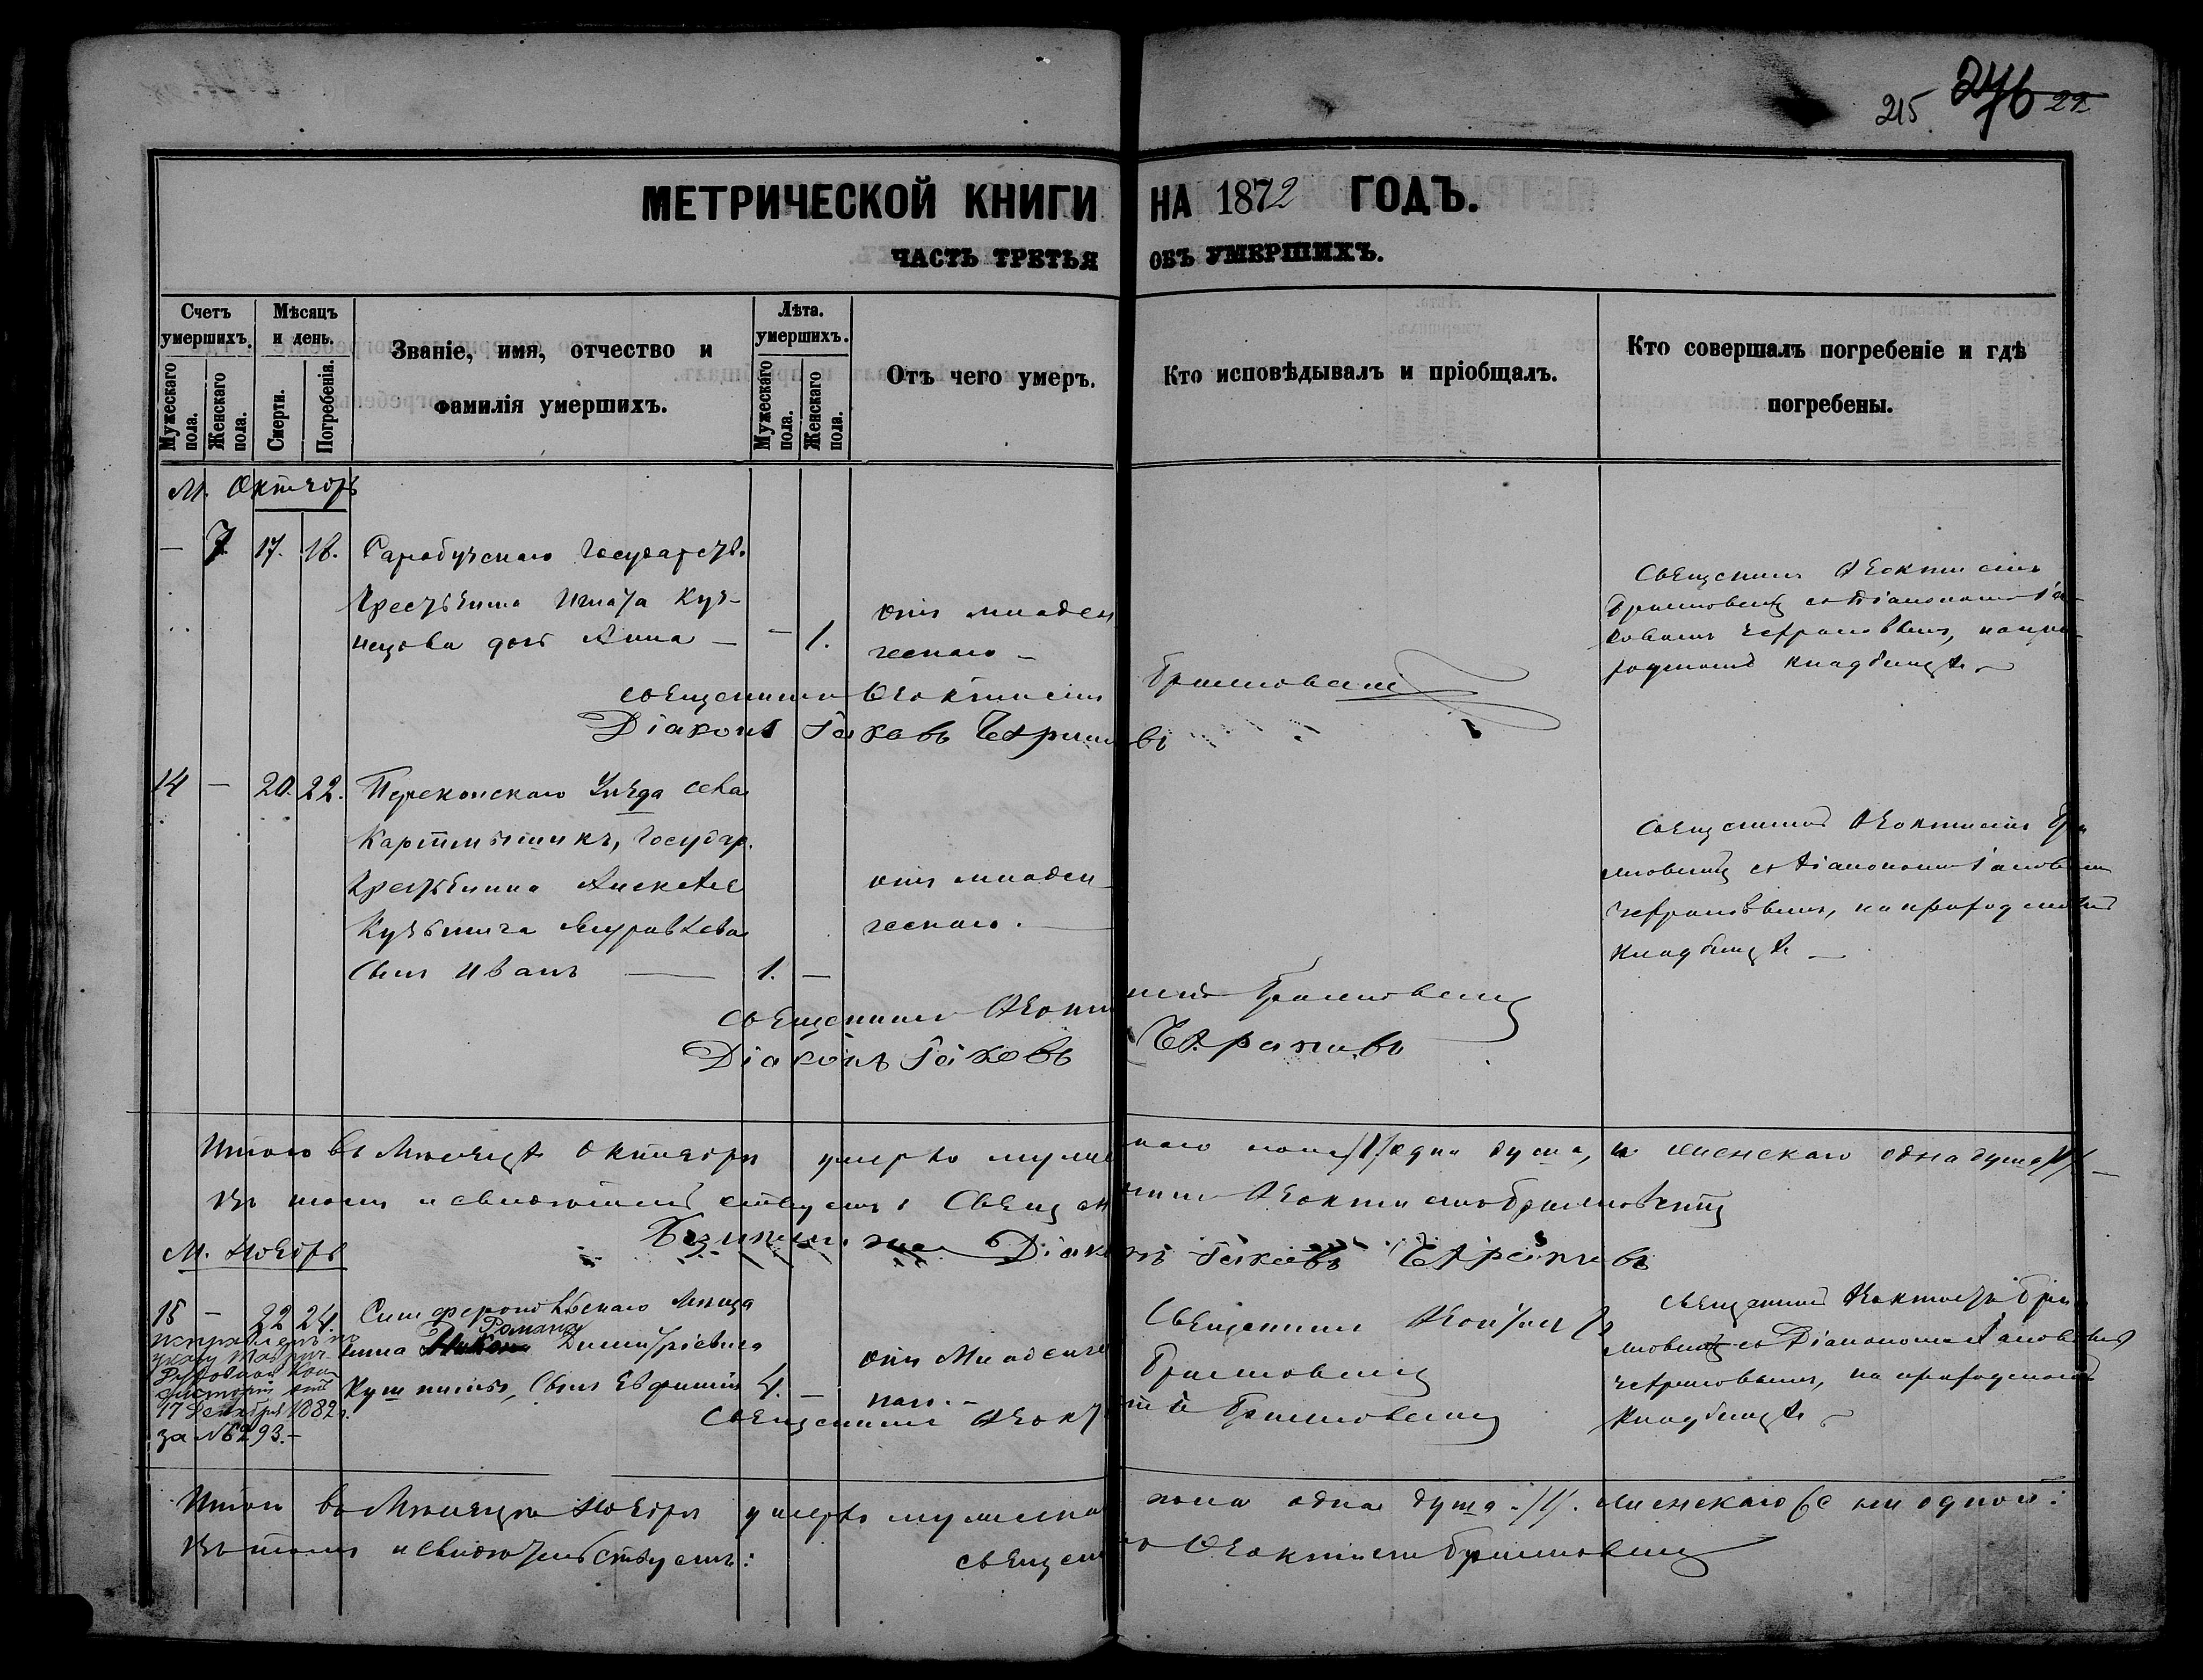 215 276 22
МЕТРИЧЕСКОЙ КНИГИ НА 1872 ГОДЪ.
ЧАСТЬ ТРЕТЬЯ ОБЪ УМЕРШИХЪ.
Счетъ умершихъ.
Мужескаго пола.
Женскаго пола.
Мѣсяцъ и день.
Смерти.
Погребенія.
Званіе, имя, отчество и
фамилія умершихъ.
Лѣта. умершихъ.
Мужескаго пола.
Женскаго пола.
Отъ чего умеръ.
Кто исповѣдывалъ и пріобщалъ.
Кто совершалъ погребеніе и гдѣ
погребены.
М. Октябрь
— 7 17. 18. Сарабузскаго Государств.
Крестьянина Игната Куз-
нецова дочь Анна — — 1.
отъ младен
ческаго —
Священникъ Ѳеоктистъ
съ Діакономъ Іа-
ковомъ на при-
ходскомъ кладбищѣ
Священникъ Ѳеоктистъ
Діаконъ Іаковъ
14 — 20. 22. Перекопскаго Уѣзда села
Государ.
Крестьянина Алексѣя
Кузьмича Журавлева
Сынъ Иванъ — 1. —
отъ младен-
ческаго. —
Священникъ Ѳеоктистъ
съ Діакономъ Іаковомъ
на приходскомъ
кладбищѣ —
Священникъ Ѳеокти
Діаконъ Іаковъ
Итого въ Мѣсяцѣ Октябрѣ умерло мужескаго пола /1/ одна душа, и женскаго одна душа /1/ —
Въ томъ и свидѣтельствуемъ: Священникъ Ѳеоктистъ
Діаконъ Іаковъ
М. Ноябрь
15 — 22 24. Симферопольскаго Мѣща
нина Романа Димитріевича
Сынъ Евфимій 4. —
исправлено по
указу Тавричес.
Духовной Кон
систоріи отъ
17 Декабря 1882 г.
за № 6293. —
отъ Младенче
скаго. —
Священникъ Ѳеоктистъ
Священникъ Ѳеоктистъ
съ Діакономъ Іаковомъ
на приходскомъ
кладбищѣ
Священникъ Ѳеокт
Итого въ Мѣсяцѣ Ноябрѣ умерло мужескаго пола одна душа /1/. женскаго ни одной:
Въ томъ и свидѣтельствуемъ: священ Ѳеоктистъ